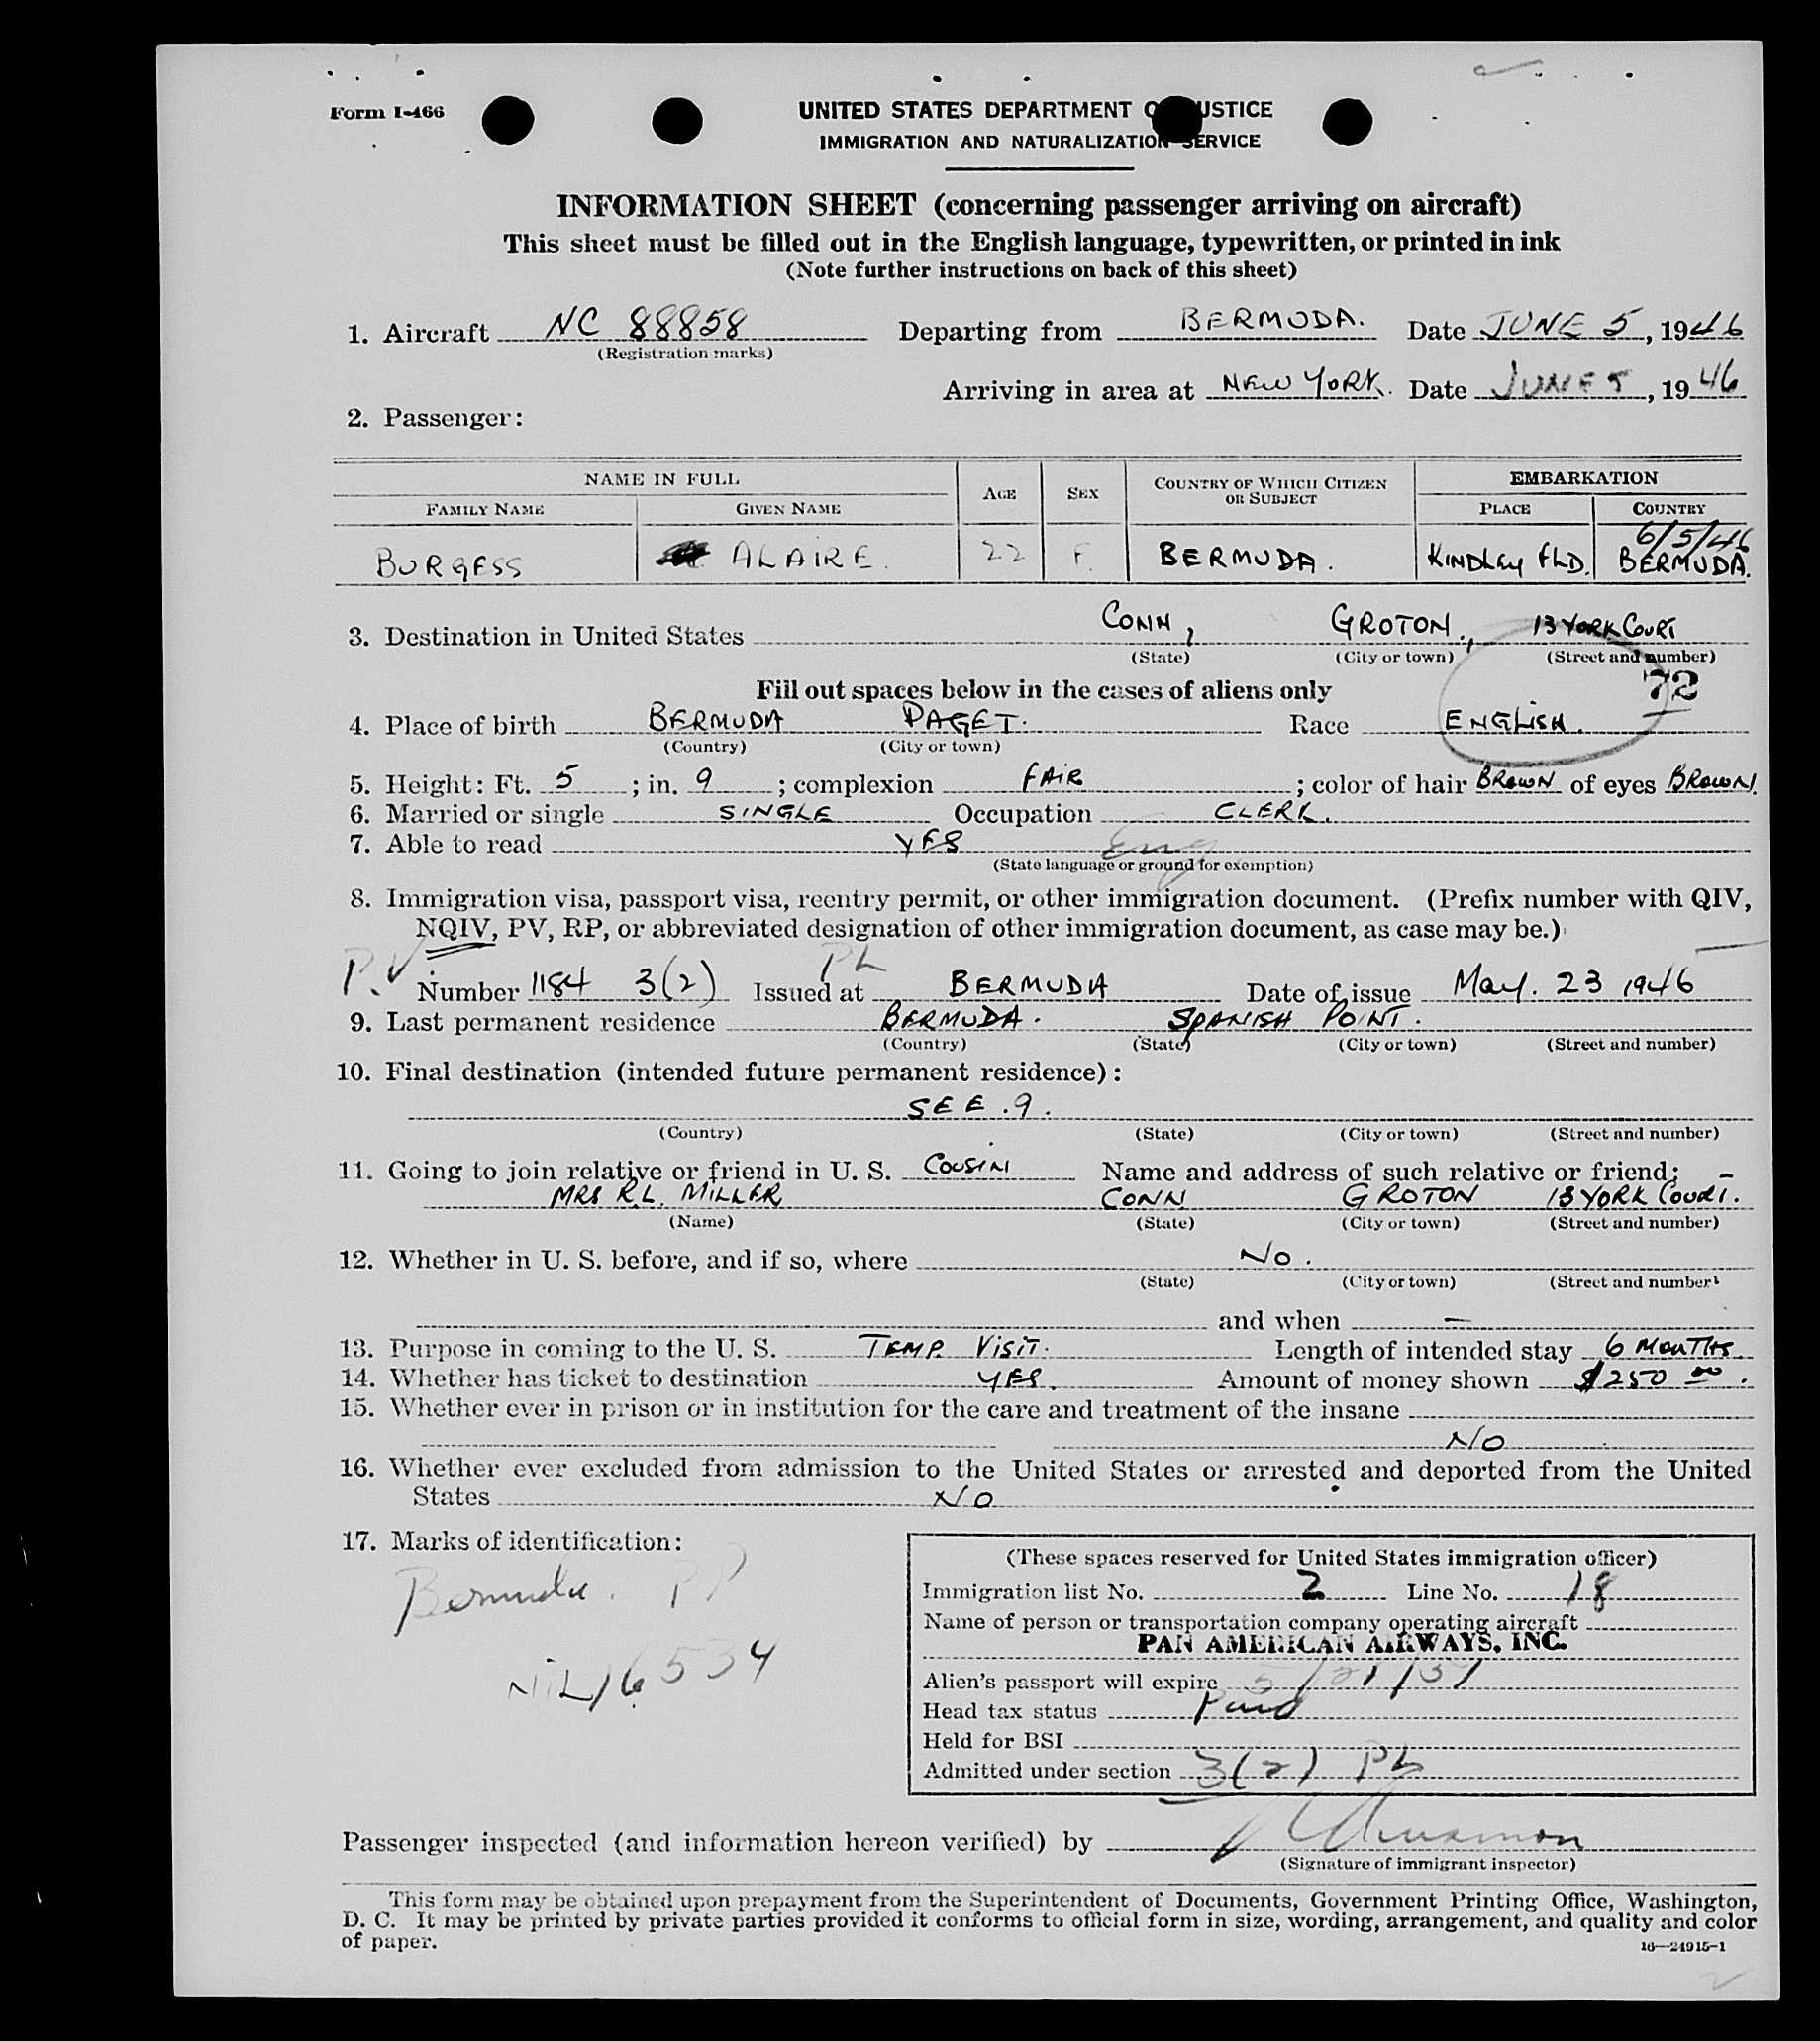 Form I-466
UNITED STATES DEPARTMENT OF JUSTICE
IMMIGRATION AND NATURALIZATION SERVICE
INFORMATION SHEET (concerning passenger arriving on aircraft)
This sheet must be filled out in the English language, typewritten, or printed in ink
(Note further instructions on back of this sheet)
1. Aircraft NC 88858 Departing from BERMUDA. Date JUNE 5, 1946
(Registration marks)
Arriving in area at NEW YORK. Date JUNE 5, 1946
2. Passenger:
NAME IN FULL AGE SEX COUNTRY OF WHICH CITIZEN OR SUBJECT EMBARKATION
FAMILY NAME GIVEN NAME PLACE COUNTRY
6/5/46
BURGESS ALAIRE. 22 F. BERMUDA. KINDLEY FLD. BERMUDA.
3. Destination in United States CONN, GROTON., 13 YORK COURT
(State) (City or town) (Street and number)
Fill out spaces below in the cases of aliens only 72
4. Place of birth BERMUDA PAGET. Race ENGLISH.
(Country) (City or town)
5. Height: Ft. 5; in. 9; complexion FAIR; color of hair BROWN of eyes BROWN.
6. Married or single SINGLE Occupation CLERK.
7. Able to read YES Eng
(State language or ground for exemption)
8. Immigration visa, passport visa, reentry permit, or other immigration document. (Prefix number with QIV,
NQIV, PV, RP, or abbreviated designation of other immigration document, as case may be.)
P.V. Number 1184 3(2) Issued at BERMUDA Date of issue May. 23 1946
9. Last permanent residence BERMUDA. SPANISH POINT.
(Country) (State) (City or town) (Street and number)
10. Final destination (intended future permanent residence):
SEE .9.
(Country) (State) (City or town) (Street and number)
11. Going to join relative or friend in U. S. COUSIN Name and address of such relative or friend:
MRS R.L. MILLER CONN GROTON 13 YORK COURT.
(Name) (State) (City or town) (Street and number)
12. Whether in U. S. before, and if so, where NO.
(State) (City or town) (Street and number)
and when —
13. Purpose in coming to the U. S. TEMP. VISIT. Length of intended stay 6 MONTHS.
14. Whether has ticket to destination YES. Amount of money shown $250 00.
15. Whether ever in prison or in institution for the care and treatment of the insane
NO
16. Whether ever excluded from admission to the United States or arrested and deported from the United
States NO
17. Marks of identification:
Bermuda. PP
NIL 16534
(These spaces reserved for United States immigration officer)
Immigration list No. 2 Line No. 18
Name of person or transportation company operating aircraft
PAN AMERICAN AIRWAYS, INC.
Alien's passport will expire 5/21/51
Head tax status Paid
Held for BSI
Admitted under section 3(2)
Passenger inspected (and information hereon verified) by
(Signature of immigrant inspector)
This form may be obtained upon prepayment from the Superintendent of Documents, Government Printing Office, Washington,
D. C. It may be printed by private parties provided it conforms to official form in size, wording, arrangement, and quality and color
of paper.
16—24915-1